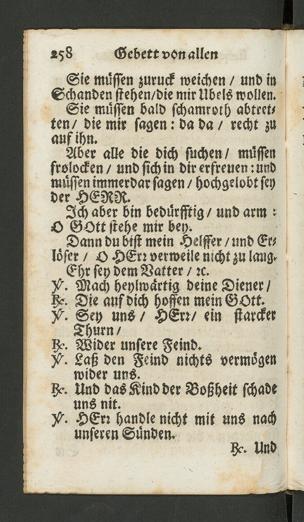 258 Gebett von allen
Sie müssen zuruck weichen / und in
Schanden stehen / die mir Ubels wollen.
Sie müssen bald schamroth abtret-
ten / die mir sagen : da da / recht zu
auf ihn.
Aber alle die dich suchen / müssen
frolocken / und sich in dir erfreuen : und
müssen immerdar sagen / hochgelobt sey
der HERR.
Ich aber bin bedürfftig / und arm :
O GOtt stehe mir bey.
Dann du bist mein Helffer / und Er-
löser / O HErr verweile nicht zu lang.
Ehr sey dem Vatter / ꝛc.
℣. Mach heylwärtig deine Diener /
℟. Die auf dich hoffen mein GOtt.
℣. Sey uns / HErr / ein starcker
Thurn /
℟. Wider unsere Feind.
℣. Laß den Feind nichts vermögen
wider uns.
℟. Und das Kind der Boßheit schade
uns nit.
℣. HErr handle nicht mit uns nach
unseren Sünden.
℟. Und